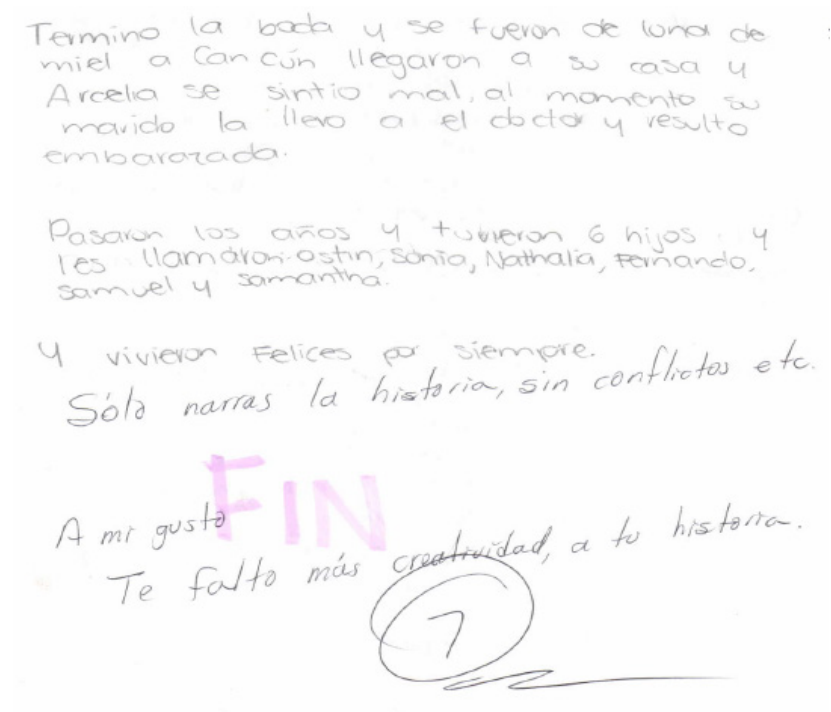 Termino la boda y se fueron de luna de
miel a Cancún llegaron a su casa y
Arcelia se sintio mal, al momento su
marido la llevo a el doctor y resulto
embarazada.
Pasaron los años y tuvieron 6 hijos y
les llamáron: ostin, Sonia, Nathalia, Fernando,
samuel y samantha.
y vivieron Felices por siempre.
Sólo narras la historia, sin conflictos etc.
FIN
A mi gusto
Te falto más creatividad, a tu historia.
7